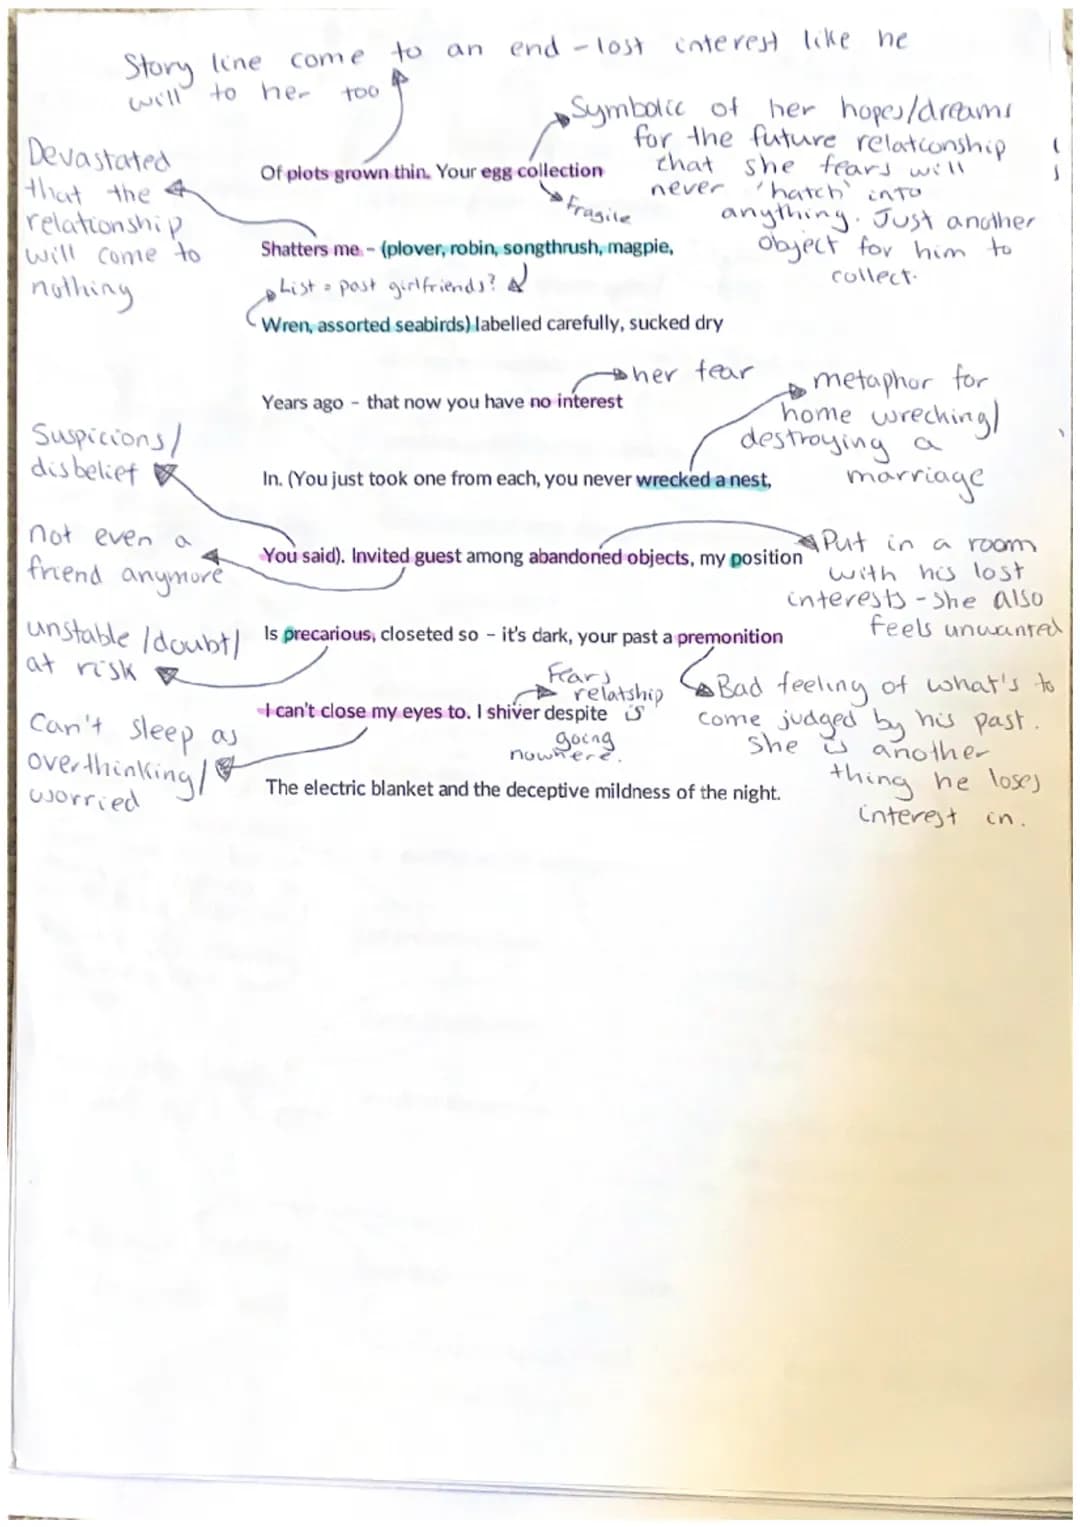 Story line come to an end - lost interest like he
will to her too
Symbolic of her hopes/dreams
for the future relationship
that she fears will
never 'hatch' into
anything. Just another
object for him to
collect.
Devastated
that the
relationship
will come to
nothing
Of plots grown thin. Your egg collection
Fragile
Shatters me – (plover, robin, songthrush, magpie,
List = past girlfriends?
Wren, assorted seabirds) labelled carefully, sucked dry
her fear
Years ago – that now you have no interest
metaphor for
home wrecking/
destroying a
marriage
Suspicions/
disbelief
In. (You just took one from each, you never wrecked a nest,
not even a
friend anymore
You said). Invited guest among abandoned objects, my position
Put in a room
with his lost
interests - she also
feels unwanted
unstable /doubt/
at risk
Is precarious, closeted so – it's dark, your past a premonition
Fears
relatship
is
going
nowhere.
Bad feeling of what's to
come judged by his past.
She is another
thing he loses
interest in.
I can't close my eyes to. I shiver despite
Can't sleep as
overthinking/
worried
The electric blanket and the deceptive mildness of the night.